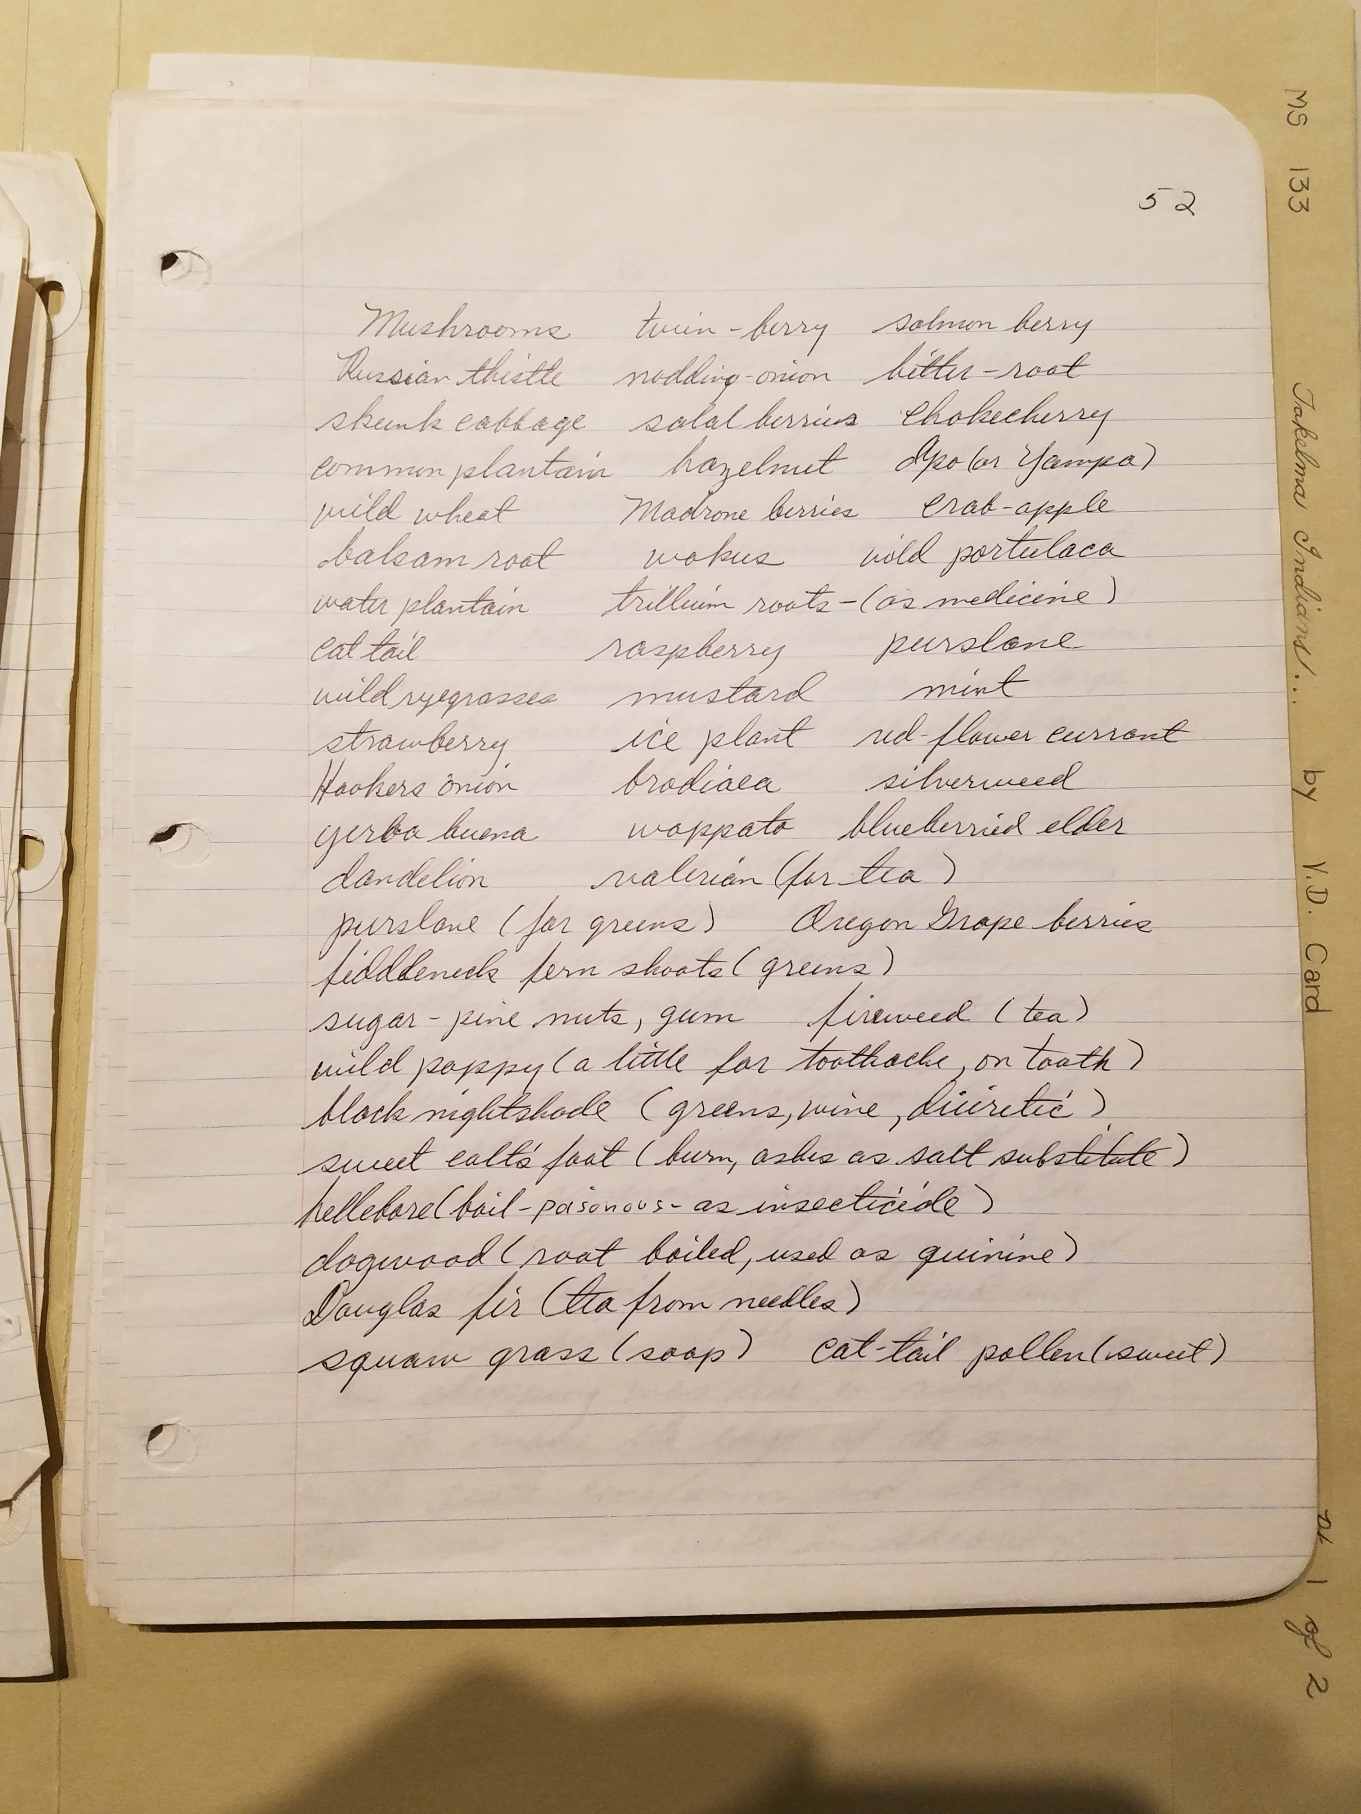 52
Mushrooms twin-berry salmon berry
Russian thistle nodding-onion bitter-root
skunk cabbage salal berries Chokecherry
common plantain hazelnut Apo (or Yampa)
wild wheat Madrone berries Crab-apple
balsam root wokus wild portulaca
water plantain trillium roots-(as medicine)
cat tail raspberry purslane
wild ryegrasses mustard mint
strawberry ice plant red-flower currant
Hookers onion brodiaea silverweed
yerba buena wappato blueberried elder
dandelion valerian (for tea)
purslane (for greens) Oregon Grape berries
fiddleneck fern shoots (greens)
sugar-pine nuts, gum fireweed (tea)
wild poppy (a little for toothache, on tooth)
black nightshade (greens, wine, diuretic)
sweet colt's foot (burn, ashes as salt substitute)
hellebore (boil-poisonous-as insecticide)
dogwood (root boiled, used as quinine)
Douglas fir (tea from needles)
squaw grass (soap) cat-tail pollen (sweet)
MS 133 Takelma Indians... by V.D. Card pt 1 of 2